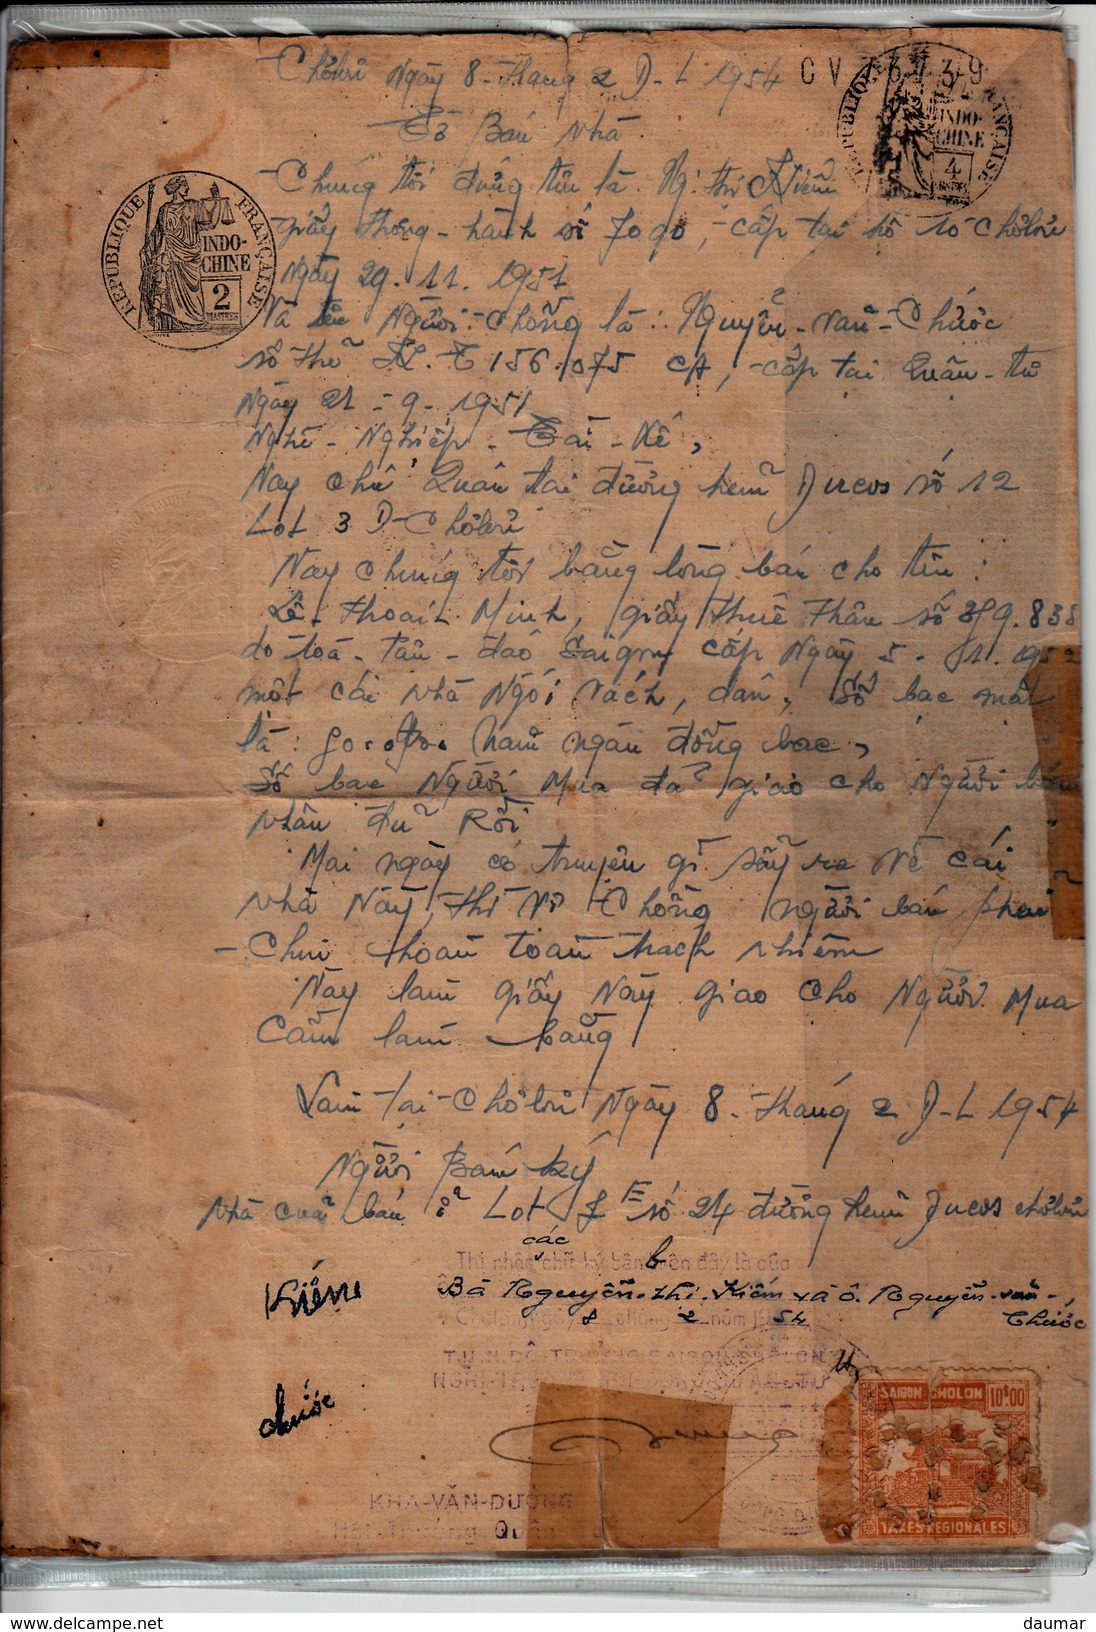 Chợlớn Ngày 8 - tháng 2 D-L 1954
CV 76739
Tờ Bán Nhà
REPUBLIQUE FRANÇAISE
INDO-
CHINE
4
REPUBLIQUE FRANÇAISE
INDO-
CHINE
2
PIASTRES
Chúng tôi đứng tên là Ng. thị Kiềm
giấy thông-hành số 7090, cấp tại hộ 10 Chợlớn
Ngày 29.11.1951
Và tên Người Chồng là: Nguyễn-văn-Chước
số thẻ 156.075 CA, cấp tại Quận-tư
Ngày 21-9-1951
Nghề-Nghiệp-Tài-Xế,
Nay chủ Quân tại đường hẻm Ducos số 12
Lot 3 D-Chợlớn
Nay chúng tôi bằng lòng bán cho tên:
Lê-thoại-Minh, giấy thuế thân số 839.838
do toà-tân-đáo Saigon cấp Ngày 5-11.1952
một cái nhà Ngói vách, dán, Số bạc mặt
là: Năm ngàn đồng bạc,
Số bạc Người Mua đã giao cho Người bán
nhận đủ Rồi
Mai ngày có truyện gì sẩy ra về cái
nhà Này, thì Vợ Chồng người bán phải
Chịu hoàn toàn trách nhiệm
Nay làm giấy Này giao cho Người Mua
Cầm làm bằng
Làm tại Chợlớn Ngày 8-tháng 2 D-L 1954
Người Bán ký
Nhà cửa bán ở Lot E số 24 đường hẻm Ducos chợlớn
các
Thị nhận chữ ký bên trên đây là của
Kiềm
Bà Nguyễn-thị-Kiếm và ô. Nguyễn-văn-
Chước
Cholon, ngày 8 tháng 2 năm 1954
T.U.N. ĐÔ-TRƯỞNG SAIGON-CHOLON
chước
SAIGON CHOLON 10$00
TAXES REGIONALES
KHA-VĂN-DƯỠNG
Hội-Trưởng Quận
daumar